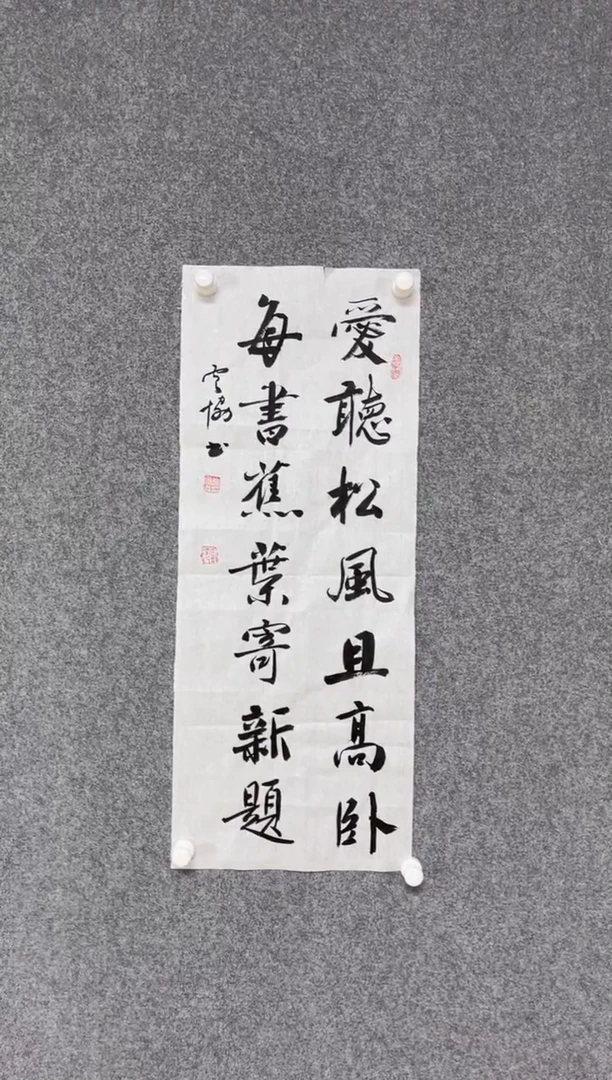 愛聽松風且高卧
每書蕉葉寄新題